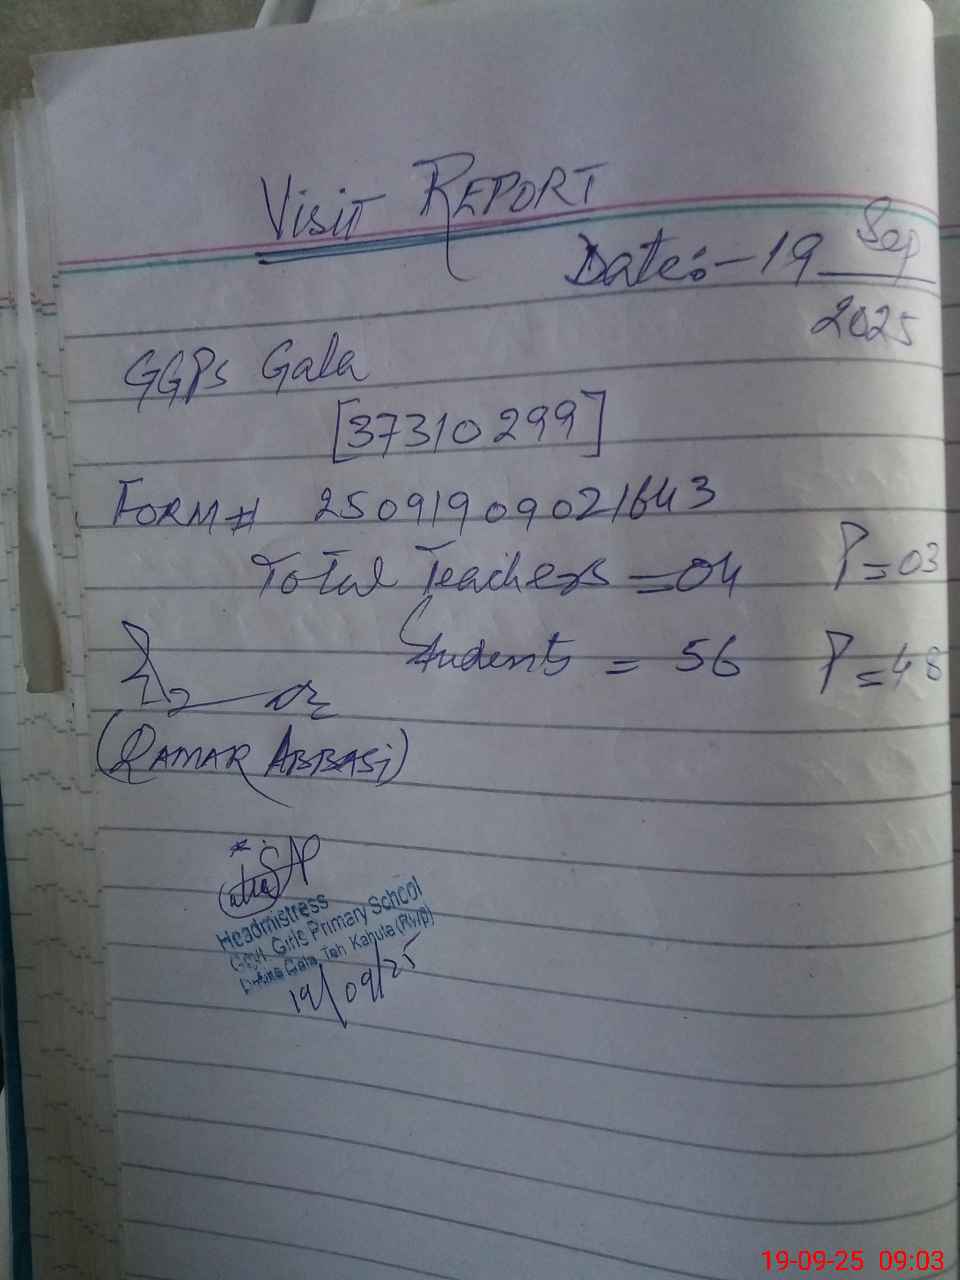 Visit REPORT
Date:- 19 Sep
2025
GGPS Gala
[37310299]
FORM # 25091909021643
Total Teachers = 04 P = 03
Students = 56 P = 48
(QAMAR ABBASI)
Headmistress
Govt. Girls Primary School
Gala Teh Kahuta (Rwp)
19/09/25
19-09-25 09:03